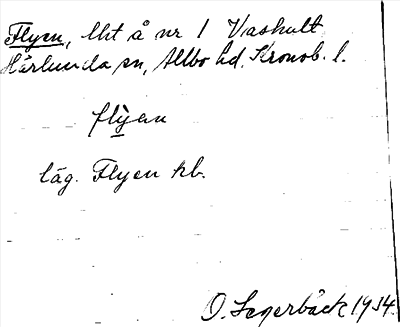 Flyen, lht å nr 1 Vashult
Härlunda sn, Allbo hd, Kronob. l.
flỳen
läg. Flyen kb.
O. Legerbäck 1934.